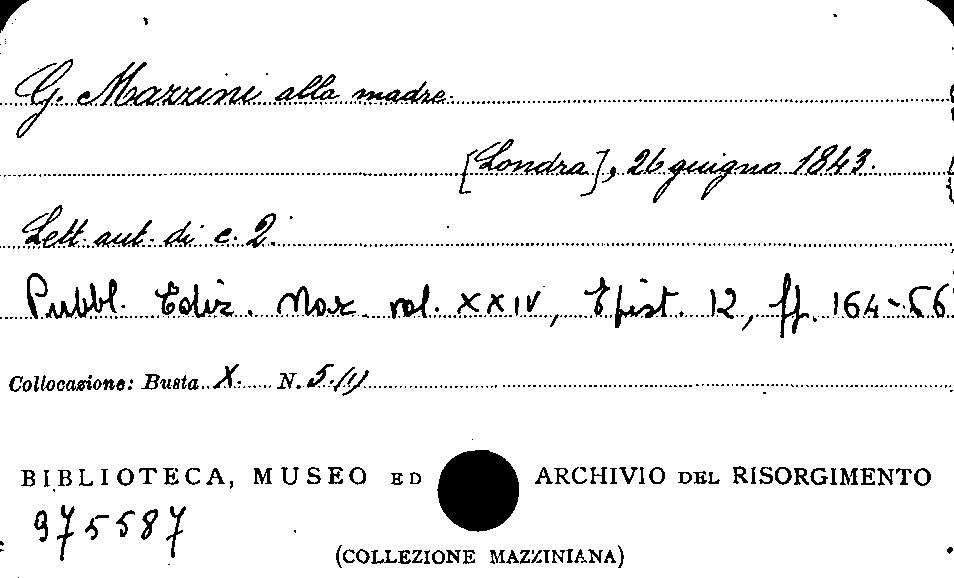 G. Mazzini alla madre.
[Londra], 26 giugno 1843.
Lett. aut. di c. 2.
Pubbl. Ediz. Naz. vol. XXIV, Epist. 12, ff. 164-66
Collocazione: Busta X. N. 5.(1)
BIBLIOTECA, MUSEO ED ARCHIVIO DEL RISORGIMENTO
975587
(COLLEZIONE MAZZINIANA)